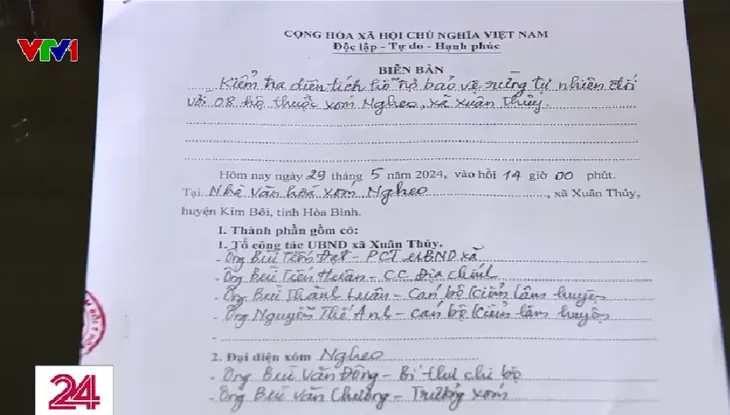 VTV1
CỘNG HÒA XÃ HỘI CHỦ NGHĨA VIỆT NAM
Độc lập - Tự do - Hạnh phúc
BIÊN BẢN
Kiểm tra diện tích hỗ trợ bảo vệ rừng tự nhiên đối
với 08 hộ thuộc xóm Nghẹo, xã Xuân Thủy.
Hôm nay ngày 29 tháng 5 năm 2024, vào hồi 14 giờ 00 phút.
Tại Nhà văn hoá xóm Nghẹo, xã Xuân Thủy,
huyện Kim Bôi, tỉnh Hòa Bình.
I. Thành phần gồm có:
1. Tổ công tác UBND xã Xuân Thủy.
- Ông Bùi Tiến Đạt - PCT UBND xã
- Ông Bùi Tiến Huân - CC Địa chính
- Ông Bùi Thành Luân - Cán bộ kiểm lâm huyện
- Ông Nguyễn Thế Anh - cán bộ kiểm lâm huyện
2. Đại diện xóm Nghẹo
- Ông Bùi Văn Đông - Bí thư chi bộ
- Ông Bùi Văn Chương - Trưởng xóm
24